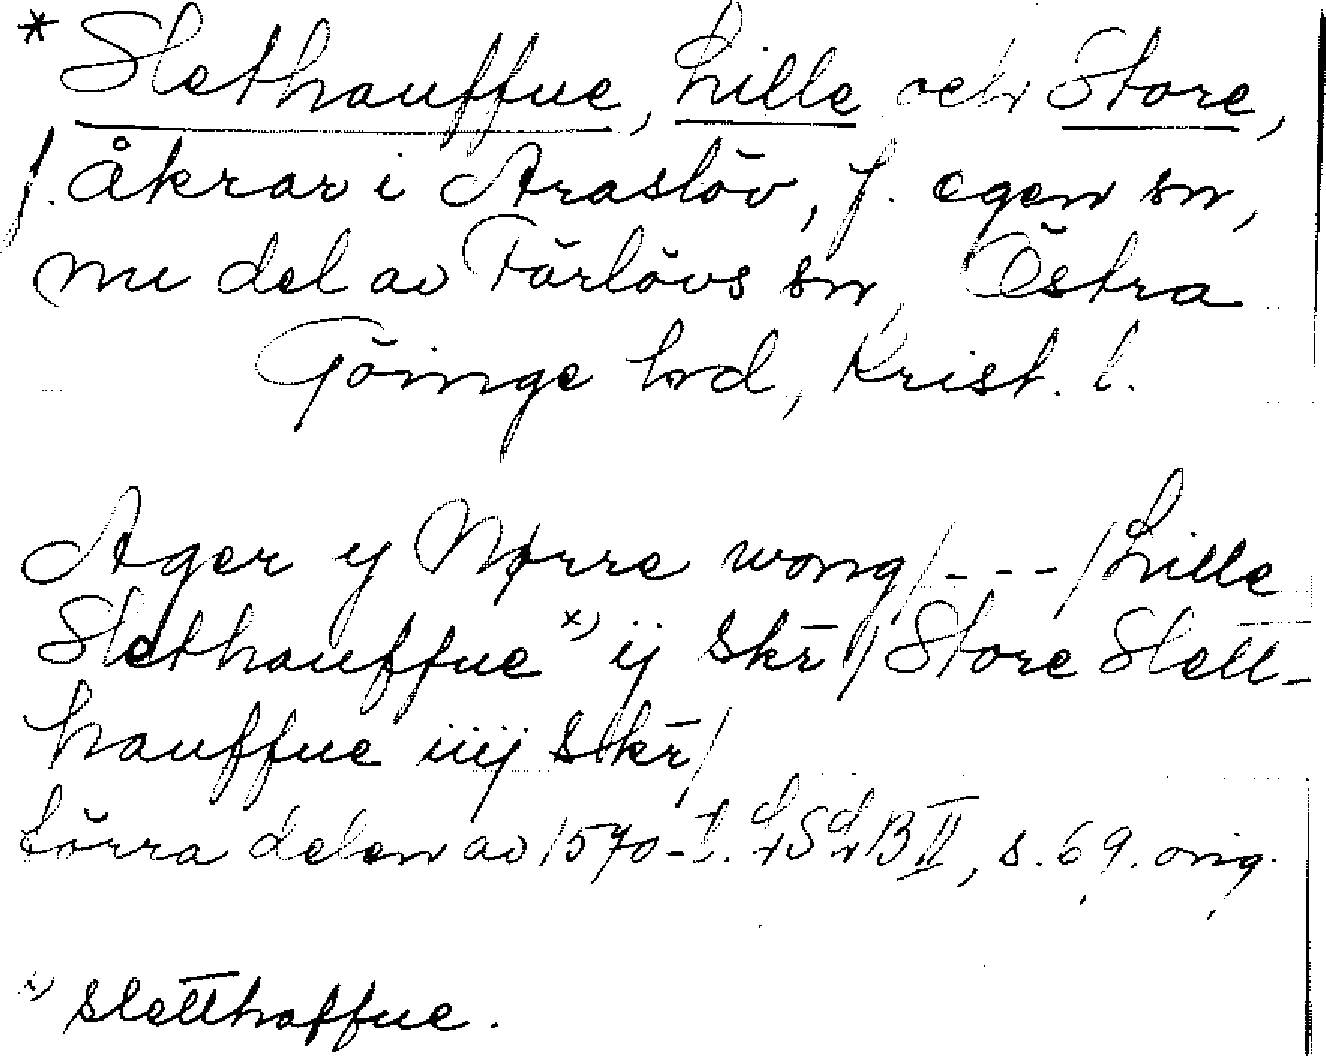 * Slethauffue, Lille och Store,
f. åkrar i Araslöv, f. egen sn,
nu del av Färlövs sn, Östra
Göinge hd, Krist. l.
Ager y Nørre wong/---/Lille
Slethauffue x) ij skr̄ // Store Slett-
hauffue iiij skr̄/
förra delen av 1570-t. LSLB II, s. 69. orig.
x) Sletthaffue.